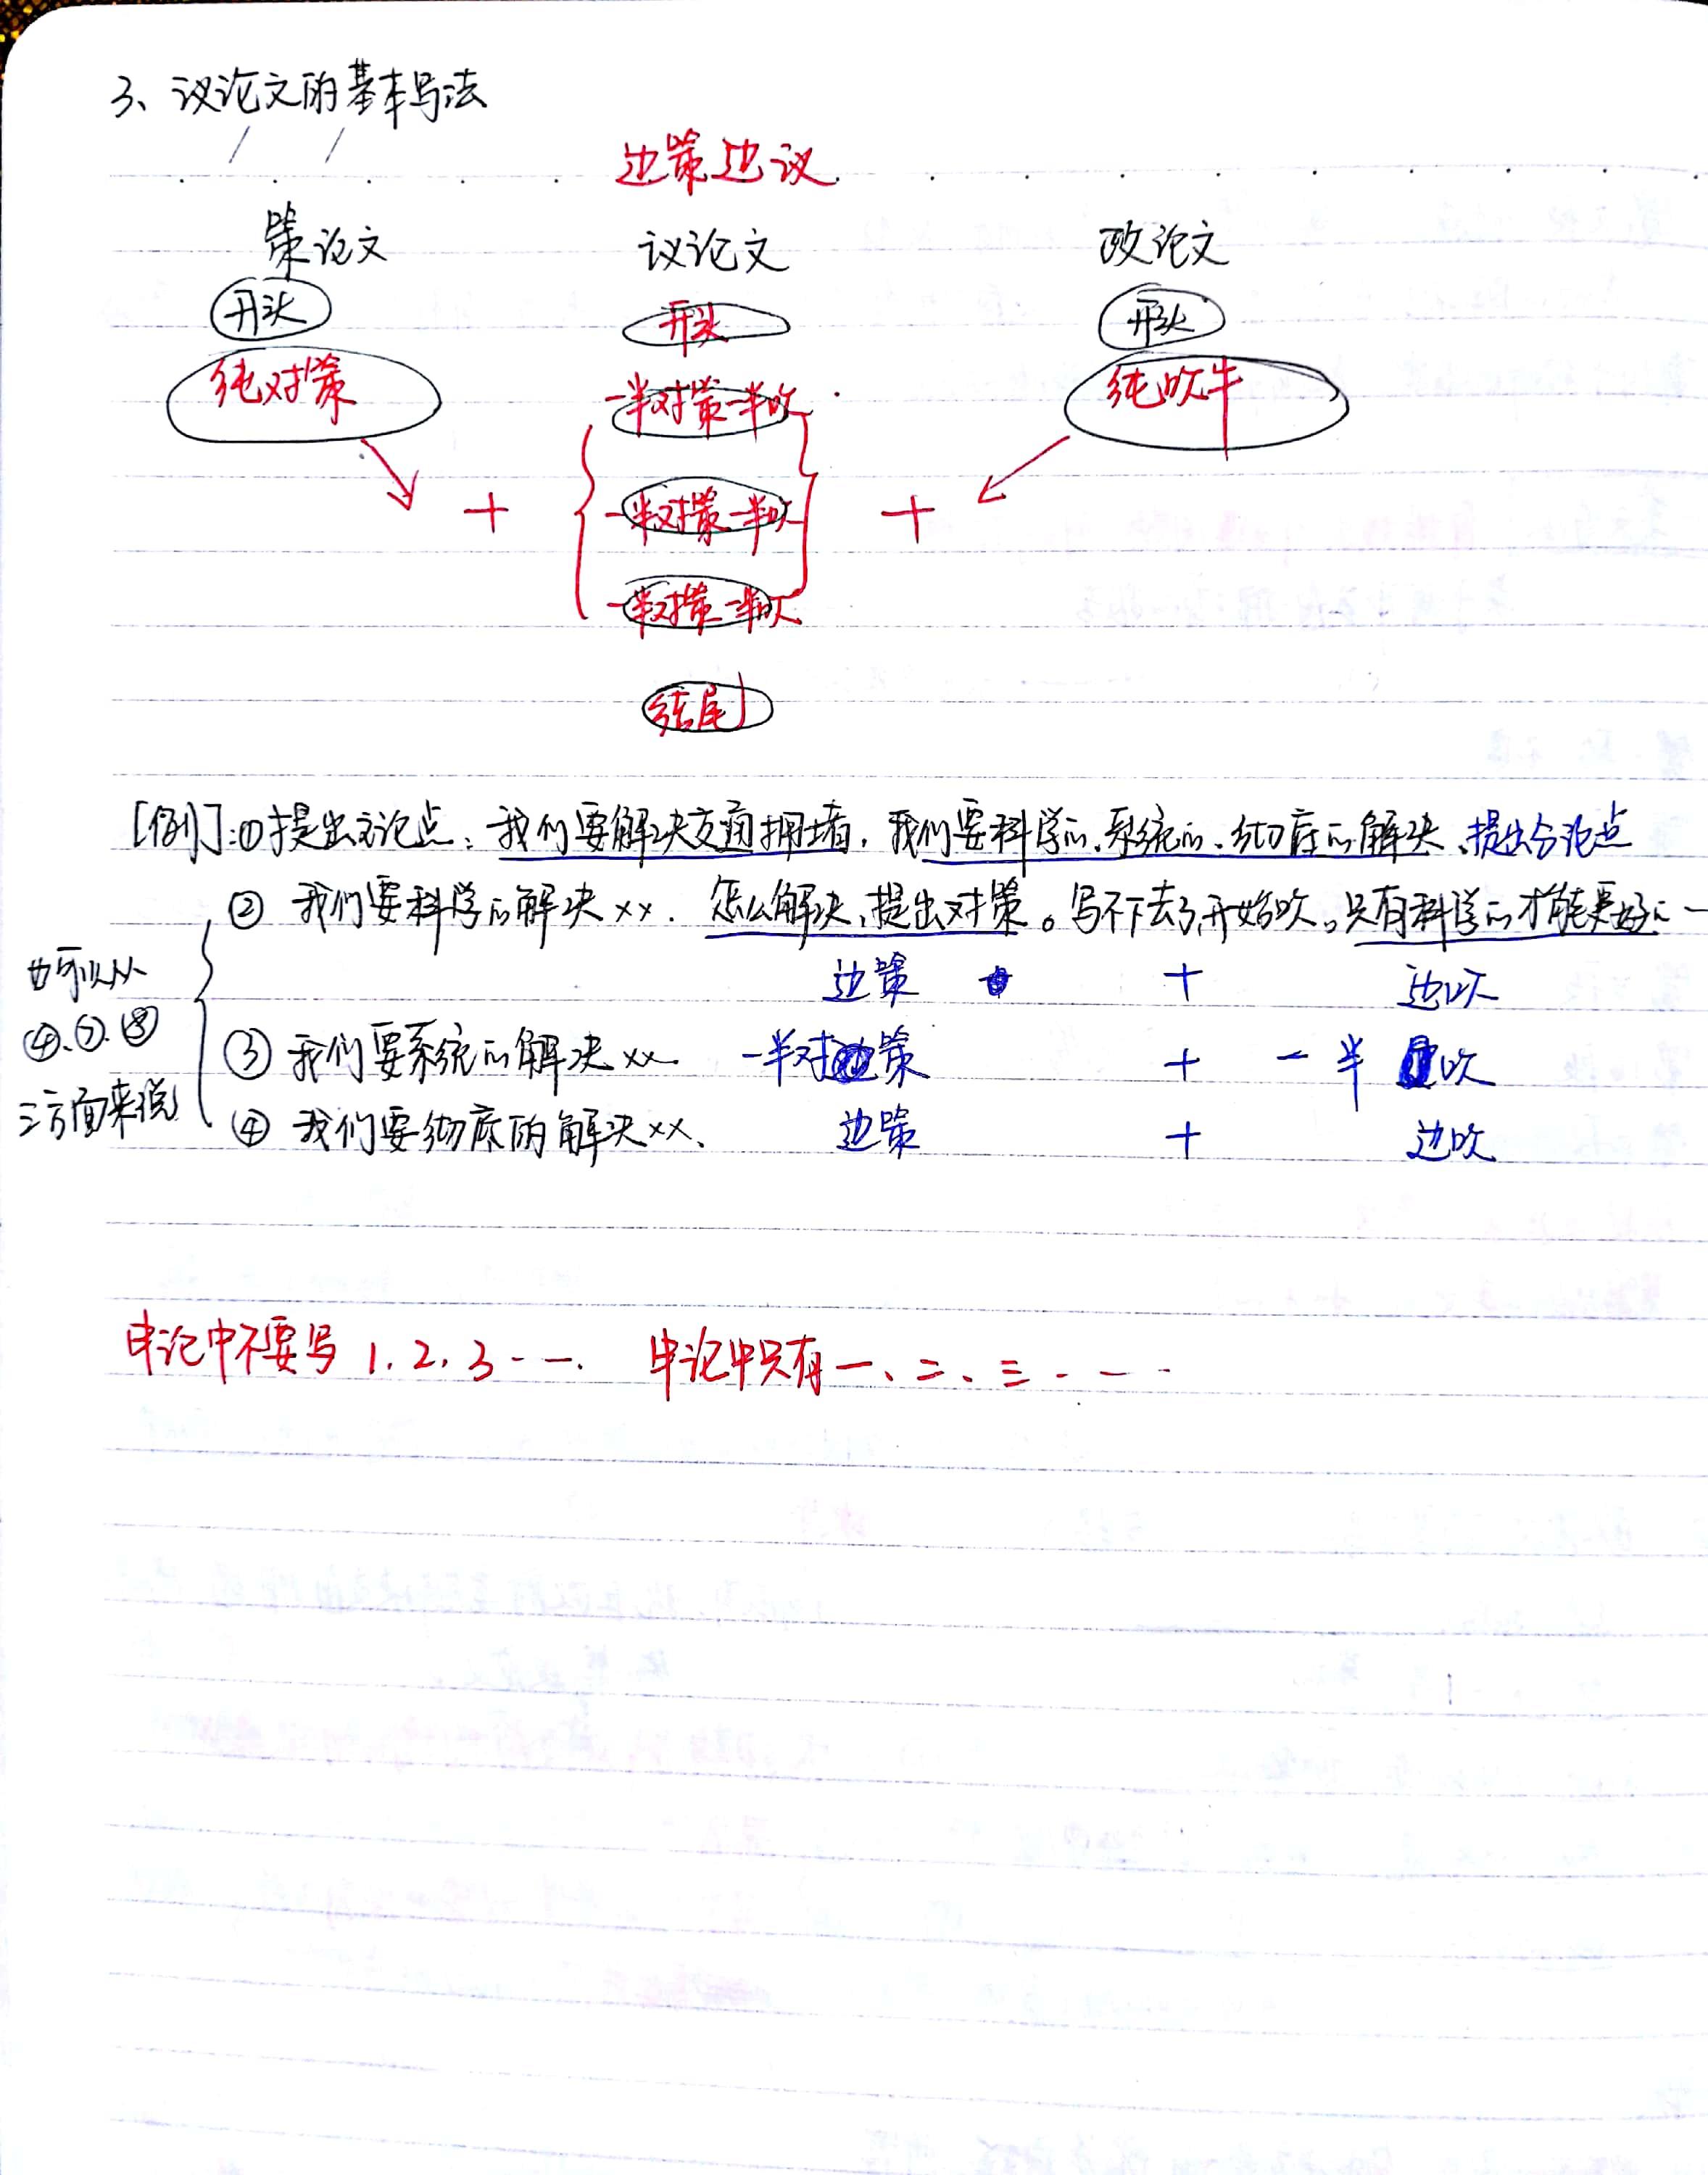 3、议论文的基本写法
边策边议
策论文 议论文 政论文
开头 开头 开头
纯对策 一半对策一半吹 纯吹牛
+ 一半对策一半吹 +
一半对策一半吹
结尾
[例]:①提出文论点：我们要解决交通拥堵，我们要科学的、系统的、彻底的解决、提出分论点
② 我们要科学的解决××. 怎么解决、提出对策。写不下去了开始吹。只有科学的才能更好的一
边策 + 边吹
也可以从
三方面来说
③ 我们要系统的解决××. 一半对策 + 一半吹
④ 我们要彻底的解决××、 边策 + 边吹
申论中不要写 1、2、3---. 申论中只有一、二、三---